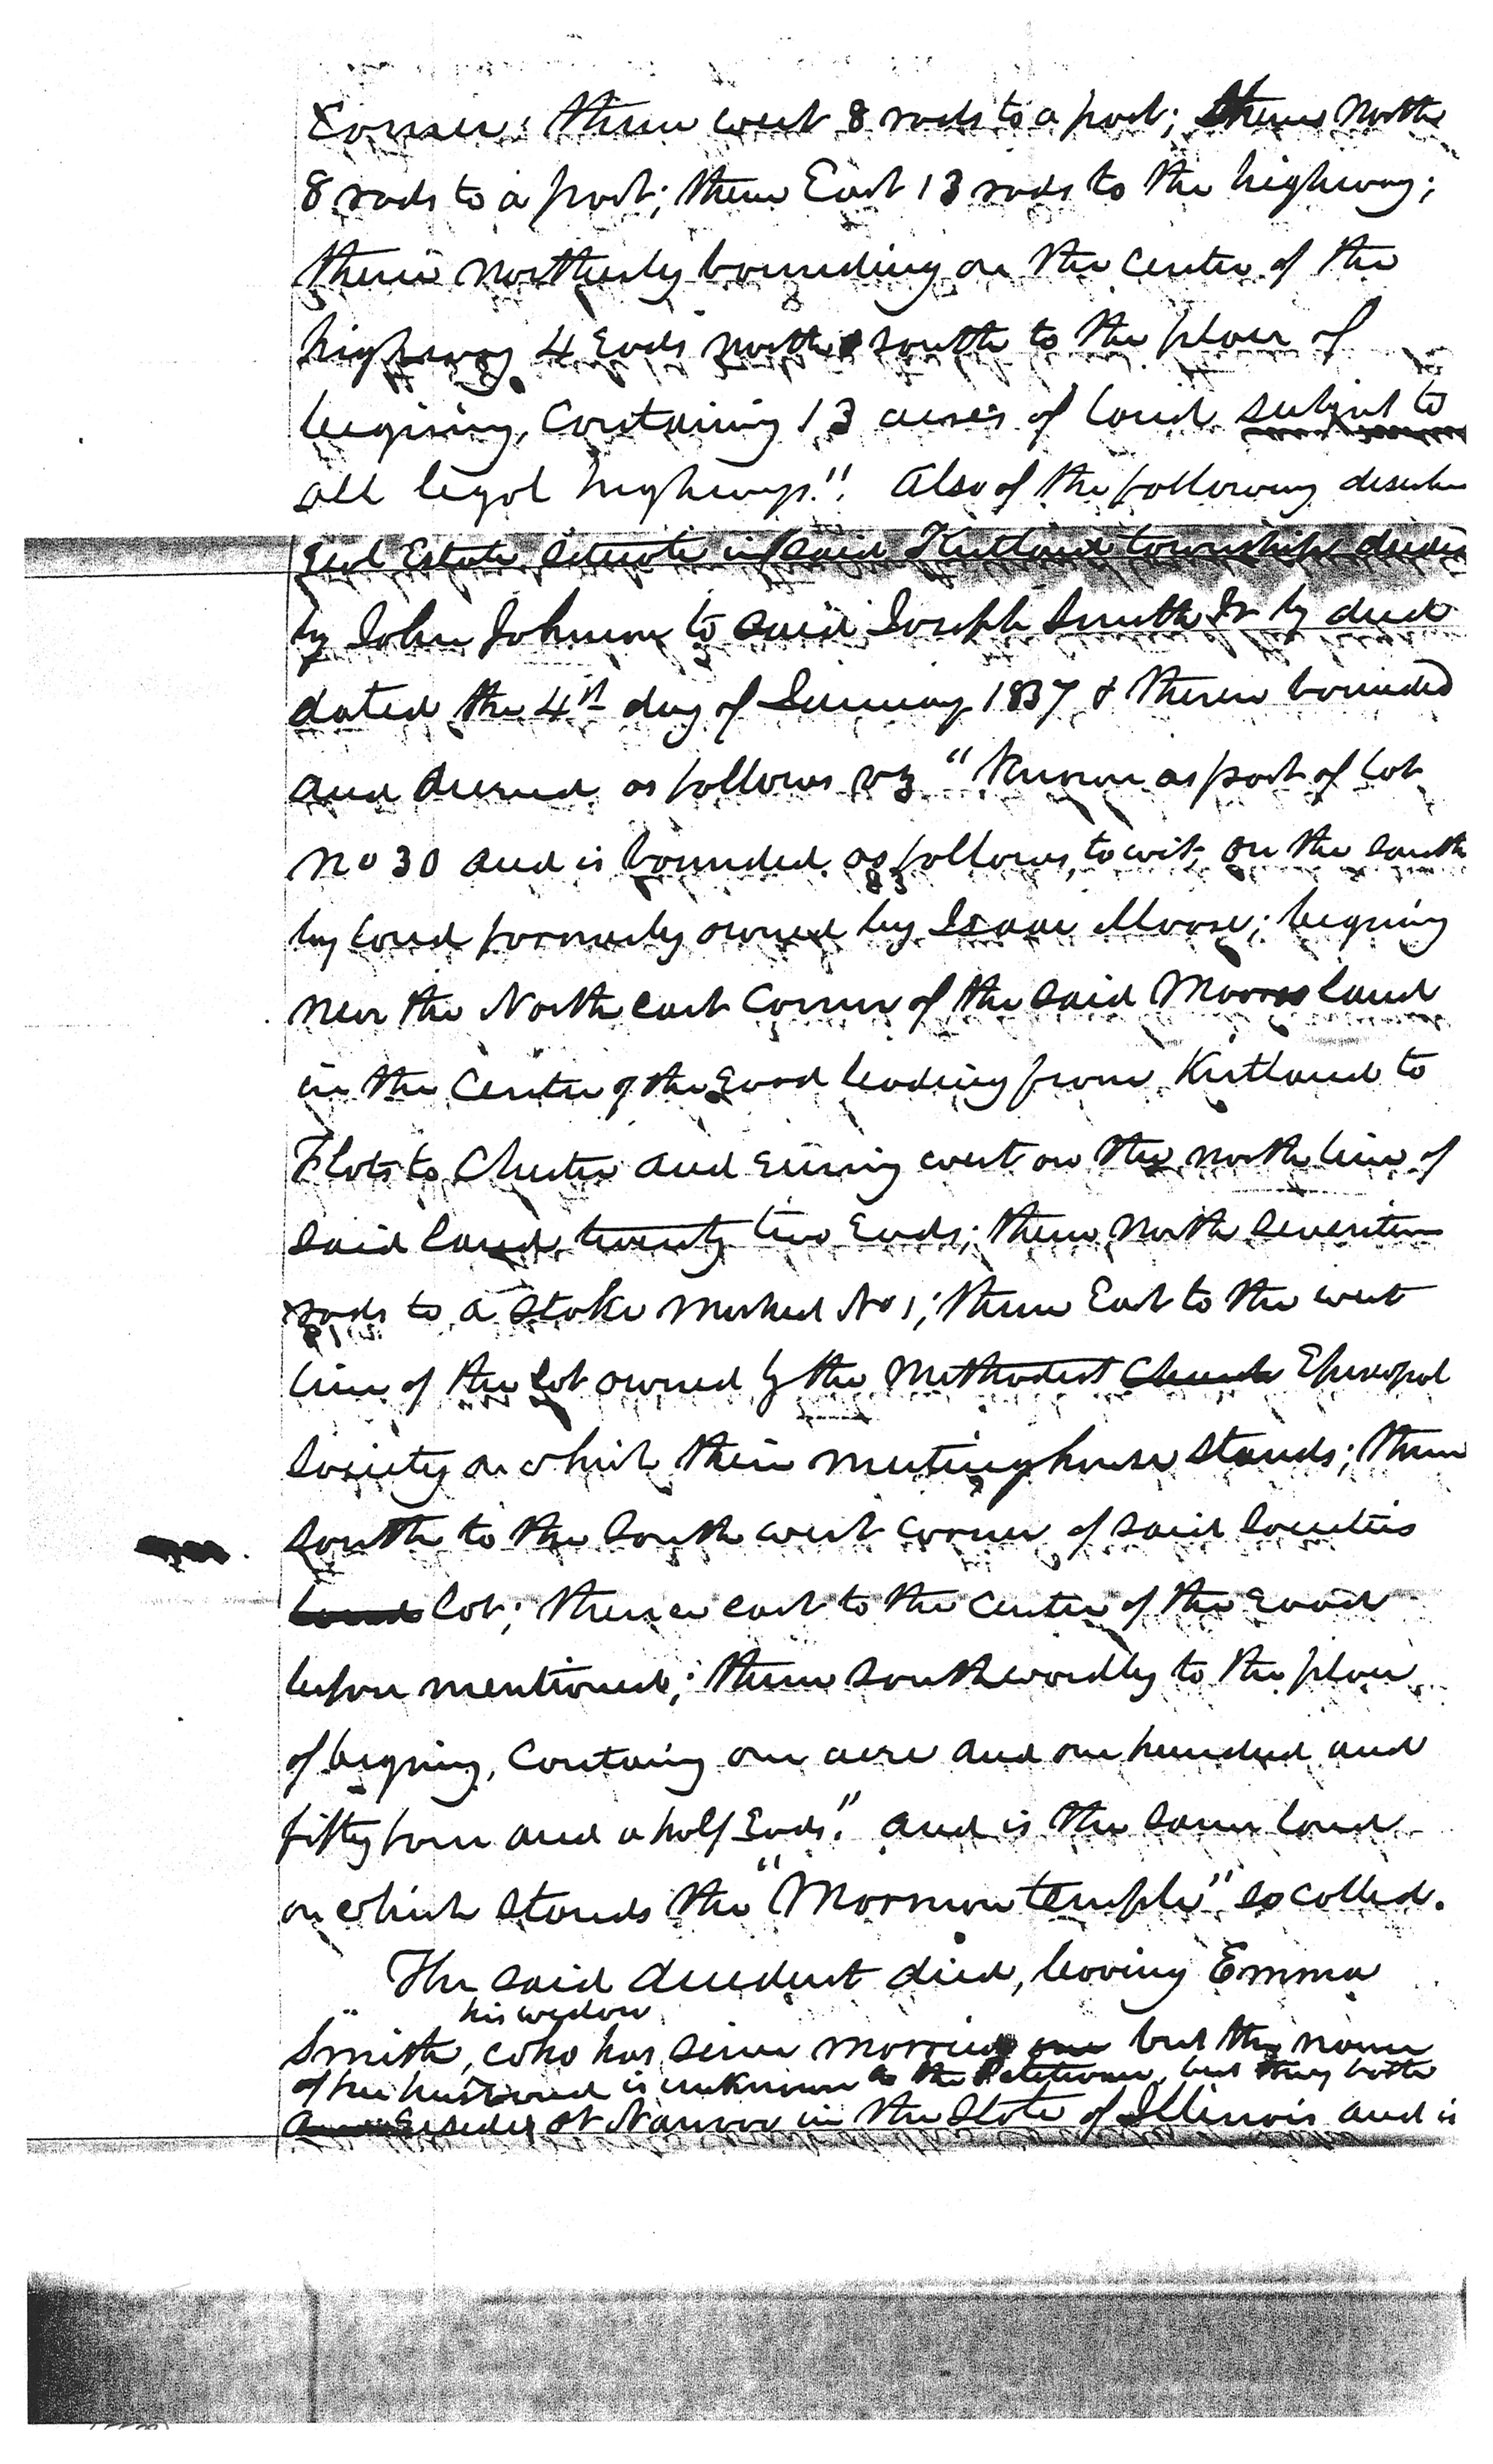 corner; thence west 8 rods to a post; thence North
8 rods to a post; thence East 13 rods to the highway;
thence northerly bounding on the center of the
highway 4 Rods north & south to the place of
begining, Containing 13 acres of land subject to
all legal highways." Also of the following
Real Estate situate in said Kirtland township deeded
by John Johnson to said Joseph Smith Jr by deed
dated the 4th day of January 1837 & therein bounded
and as follows viz "Known as part of lot
No 30 and is bounded as follows, to wit, on the south
by land formerly owned by Isaac Moore; begining
near the North east corner of the said Moores land
in the Center of the Road leading from Kirtland to
Flats to Chester and runing west on the north line of
said land twenty two Rods; thence North seventeen
rods to a stake marked No 1; thence East to the west
line of the lot owned by the Methodist Church Episcopal
Society on which their meeting house stands; thence
south to the South west corner of said Societies
land lot; thence east to the center of the Road
before mentioned; thence southwardly to the place
of begining, Containg one acre and one hundred and
fifty four and a half Rods." and is the same land
on which stands the "Mormon temple" so called.
The said decedent died, leaving Emma
his widow
Smith, who has since married but the name
of her husband is unknown to the Petitioner, but they both
resides at Nauvoo in the State of Illinois and is